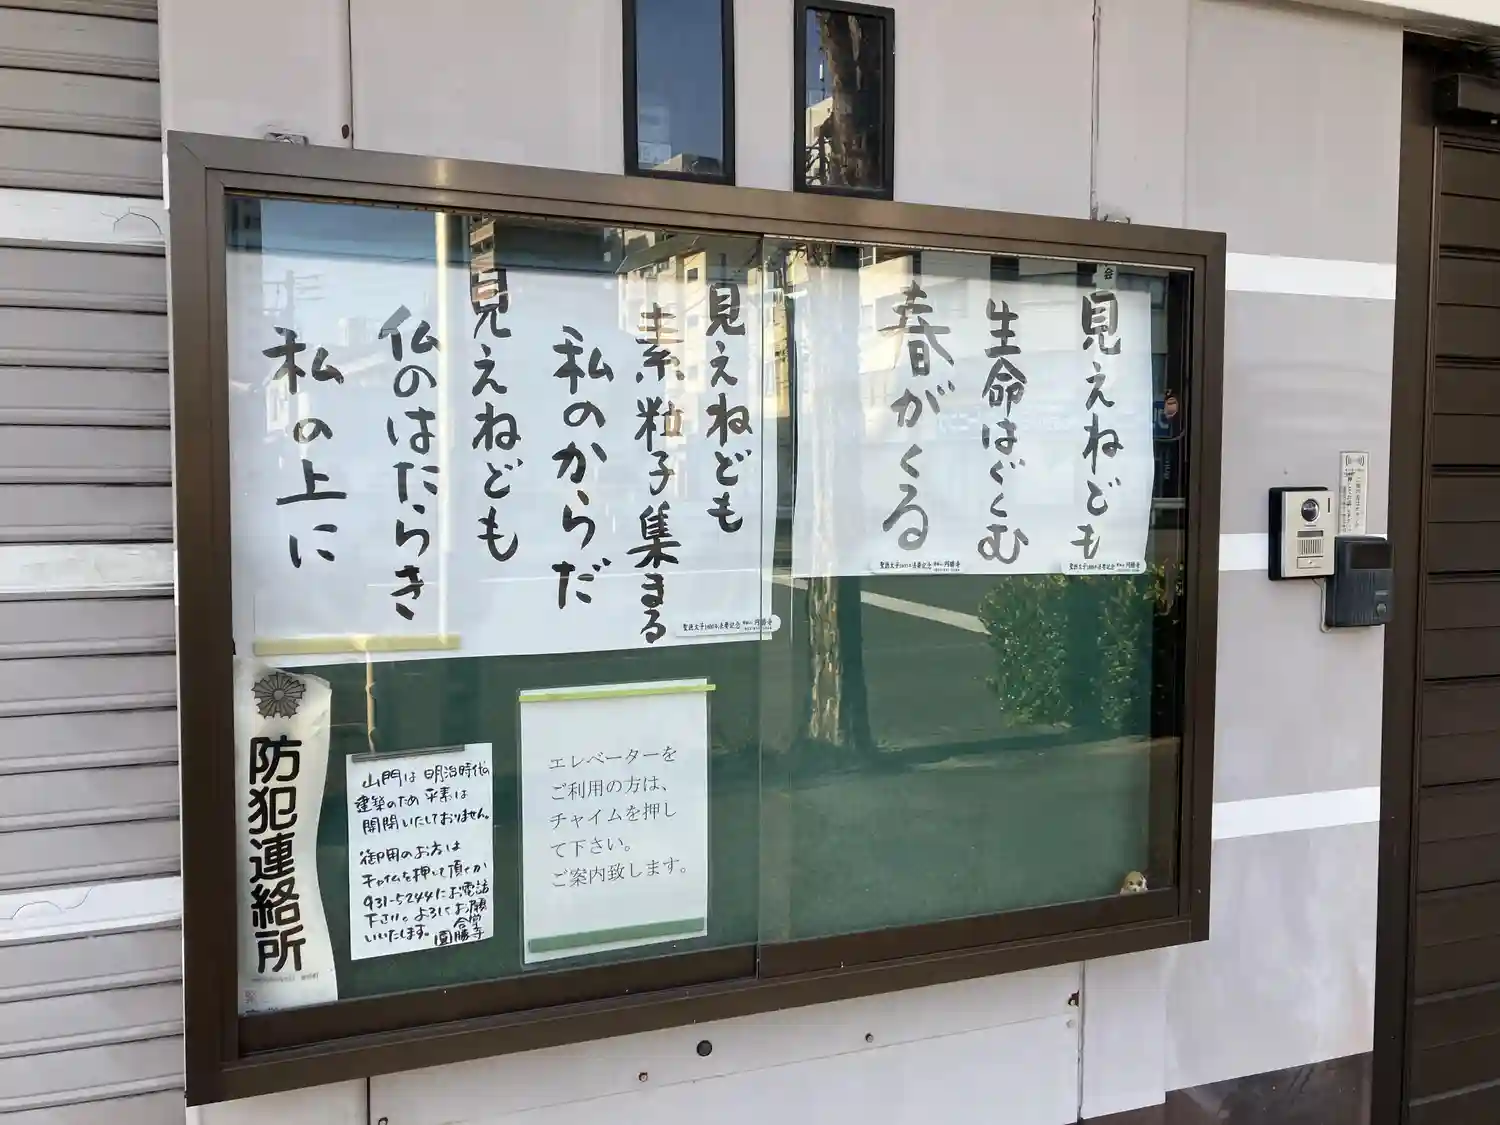 見えねども
生命はぐくむ
春がくる
見えねども
素粒子集まる
私のからだ
見えねども
仏のはたらき
私の上に
会
聖徳太子1400年法要記念
円勝寺
聖徳太子1400年法要記念
円勝寺
聖徳太子1400年法要記念
円勝寺
防犯連絡所
山門は明治時代の
建築のため平素は
開閉いたしておりません。
御用のお方は
チャイムを押して頂くか
931-5244にお電話
下さい。よろしくお願
いいたします。合掌
圓勝寺
エレベーターを
ご利用の方は、
チャイムを押し
て下さい。
ご案内致します。